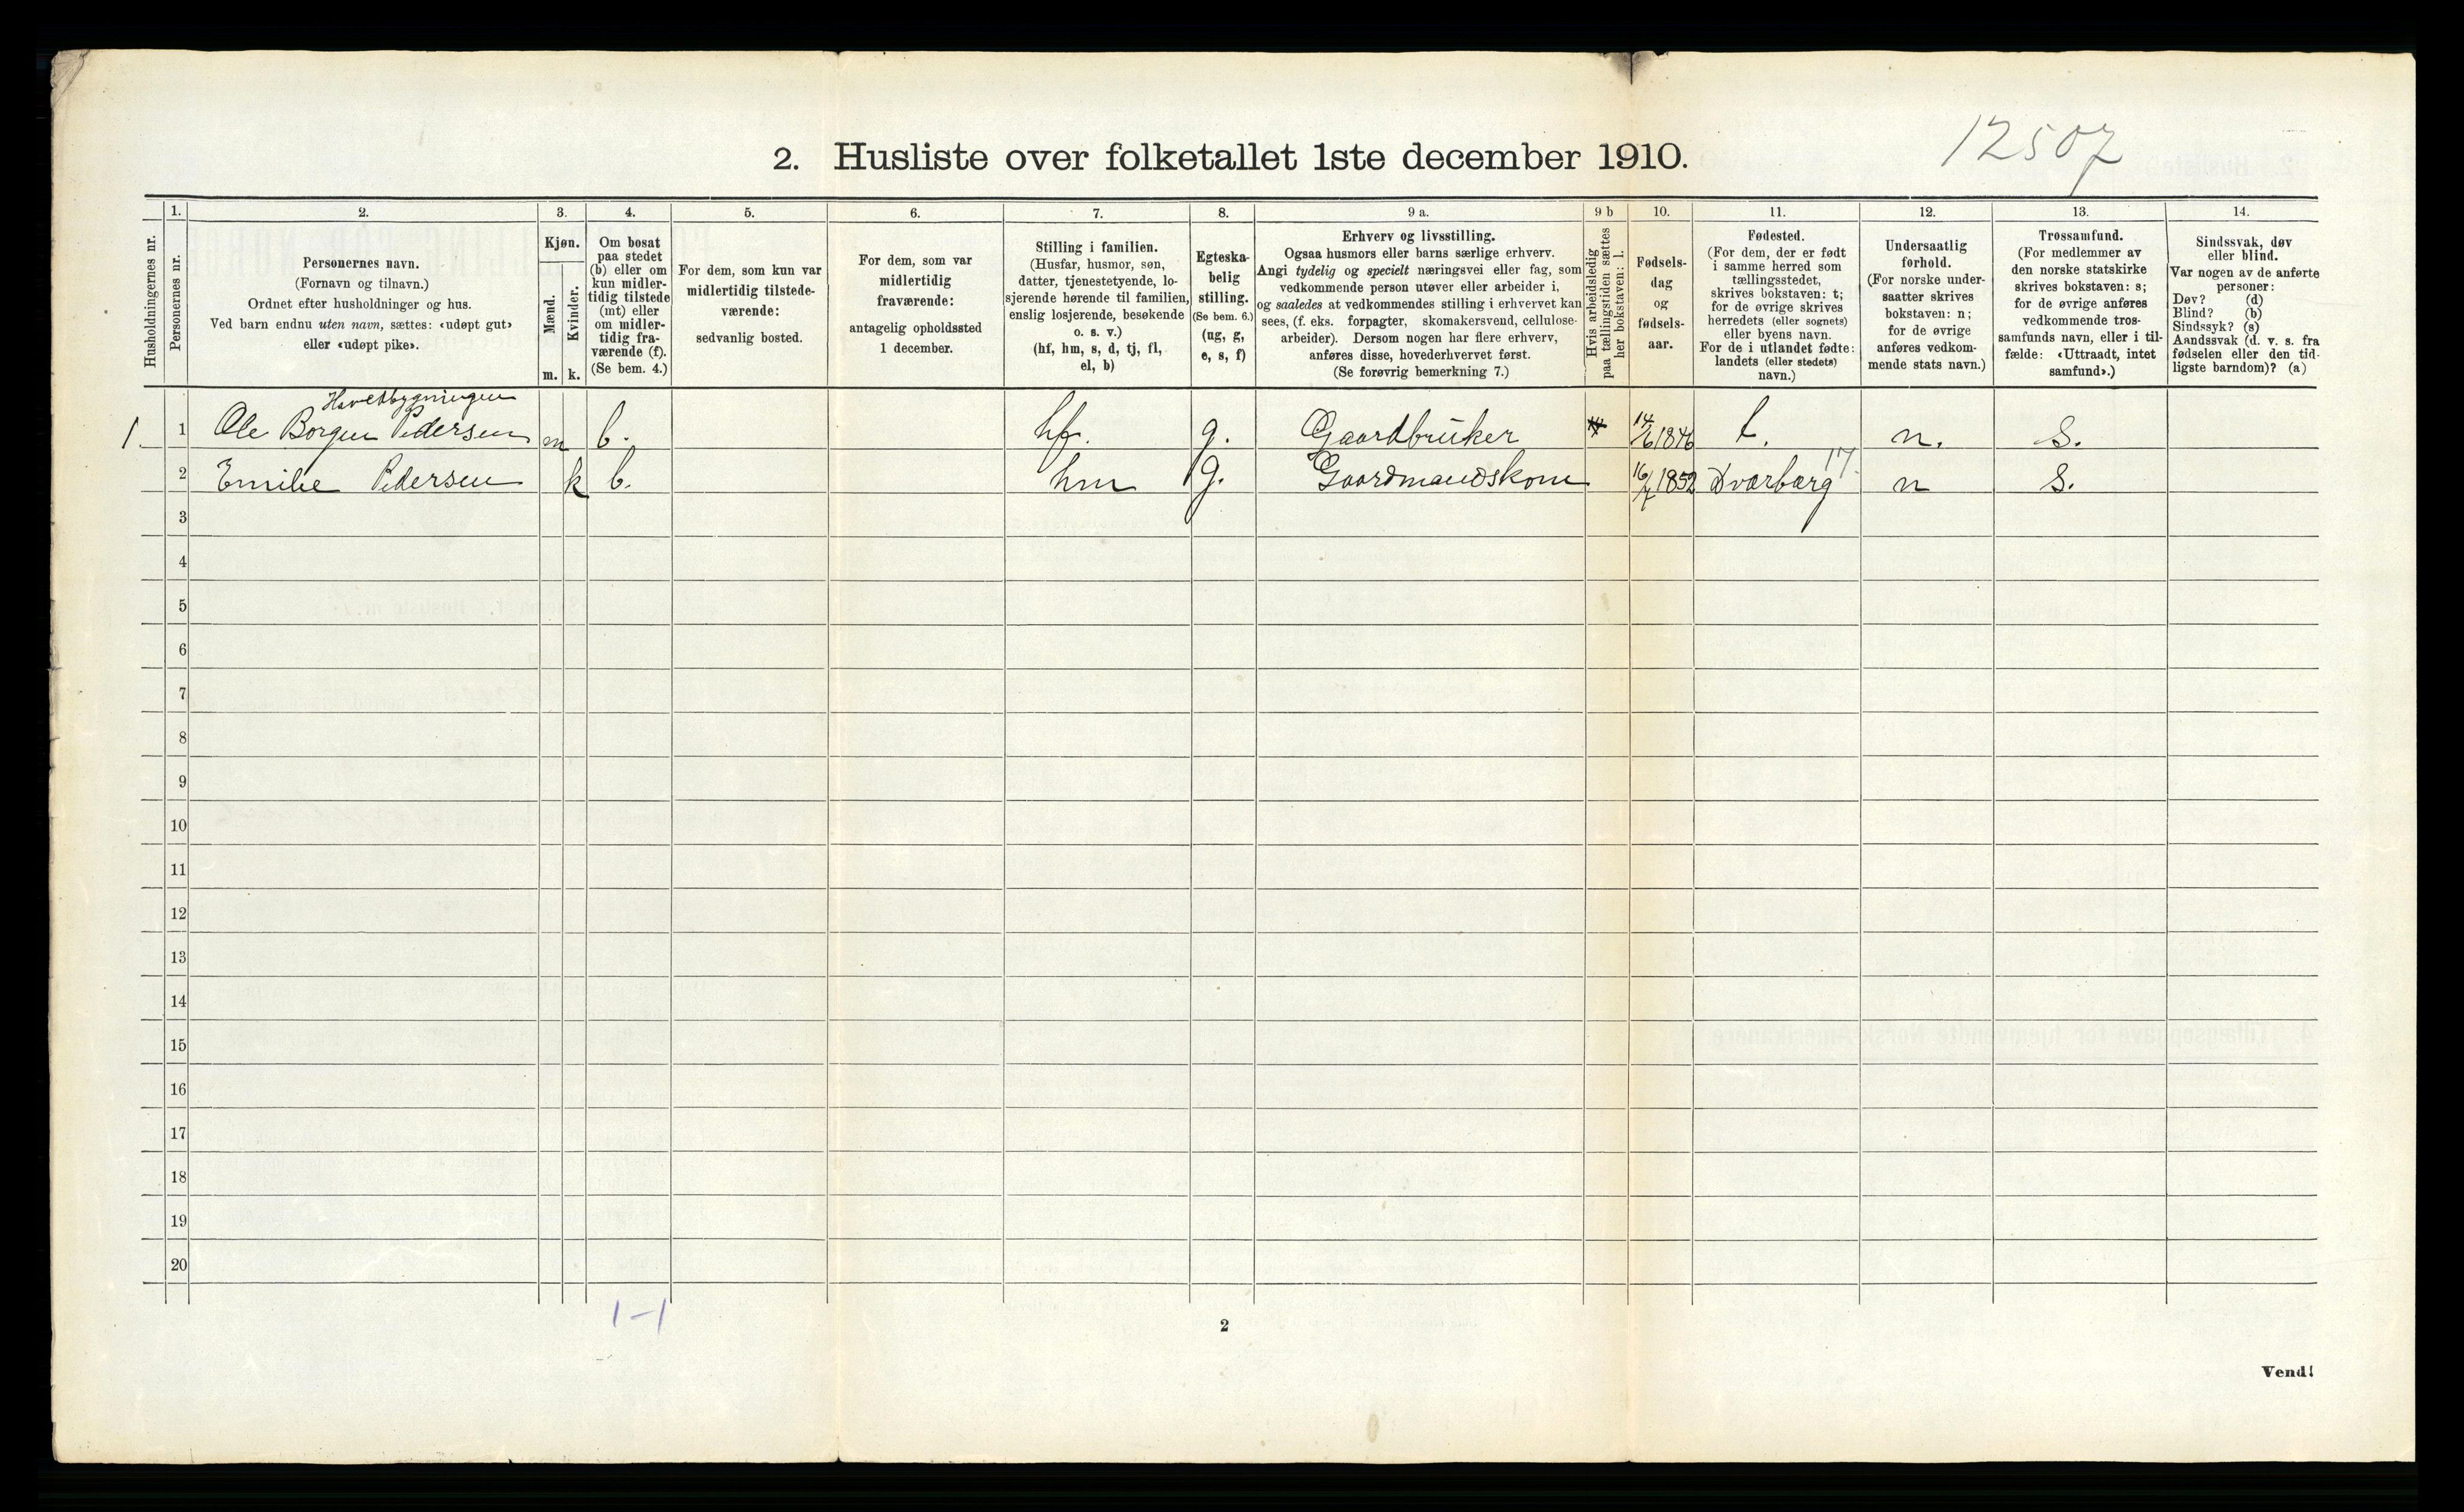 12507
2. Husliste over folketallet 1ste december 1910.
Husholdningernes nr.
1.
Personernes nr.
2.
Personernes navn.
(Fornavn og tilnavn.)
Ordnet efter husholdninger og hus.
Ved barn endnu uten navn, sættes: «udøpt gut»
eller «udøpt pike».
3.
Kjøn.
Mænd.
Kvinder.
m. k.
4.
Om bosat
paa stedet
(b) eller om
kun midler-
tidig tilstede
(mt) eller
om midler-
tidig fra-
værende (f).
(Se bem. 4.)
5.
For dem, som kun var
midlertidig tilstede-
værende:
sedvanlig bosted.
6.
For dem, som var
midlertidig
fraværende:
antagelig opholdssted
1 december.
7.
Stilling i familien.
(Husfar, husmor, søn,
datter, tjenestetyende, lo-
sjerende hørende til familien,
enslig losjerende, besøkende
o. s. v.)
(hf, hm, s, d, tj, fl,
el, b)
8.
Egteska-
belig
stilling.
(Se bem. 6.)
(ug, g,
e, s, f)
9 a.
Erhverv og livsstilling.
Ogsaa husmors eller barns særlige erhverv.
Angi tydelig og specielt næringsvei eller fag, som
vedkommende person utøver eller arbeider i,
og saaledes at vedkommendes stilling i erhvervet kan
sees, (f. eks. forpagter, skomakersvend, cellulose-
arbeider). Dersom nogen har flere erhverv,
anføres disse, hovederhvervet først.
(Se forøvrig bemerkning 7.)
9 b
Hvis arbeidsledig
paa tællingstiden sættes
her bokstaven: l.
10.
Fødsels-
dag
og
fødsels-
aar.
11.
Fødested.
(For dem, der er født
i samme herred som
tællingsstedet,
skrives bokstaven: t;
for de øvrige skrives
herredets (eller sognets)
eller byens navn.
For de i utlandet fødte:
landets (eller stedets)
navn.)
12.
Undersaatlig
forhold.
(For norske under-
saatter skrives
bokstaven: n;
for de øvrige
anføres vedkom-
mende stats navn.)
13.
Trossamfund.
(For medlemmer av
den norske statskirke
skrives bokstaven: s;
for de øvrige anføres
vedkommende tros-
samfunds navn, eller i til-
fælde: «Uttraadt, intet
samfund».)
14.
Sindssvak, døv
eller blind.
Var nogen av de anførte
personer:
Døv? (d)
Blind? (b)
Sindssyk? (s)
Aandssvak (d. v. s. fra
fødselen eller den tid-
ligste barndom)? (a)
Hovedbygningen
1. 1 Ole Borgen Pedersen m b. hf. g. Gaardbruker 14/6 1846 t. n. s.
17.
2 Emilie Pedersen k b. hm g. Gaardmandskone 16/7 1852 n s.
3
4
5
6
7
8
9
10
11
12
13
14
15
16
17
18
19
20
1-1
2
Vend!